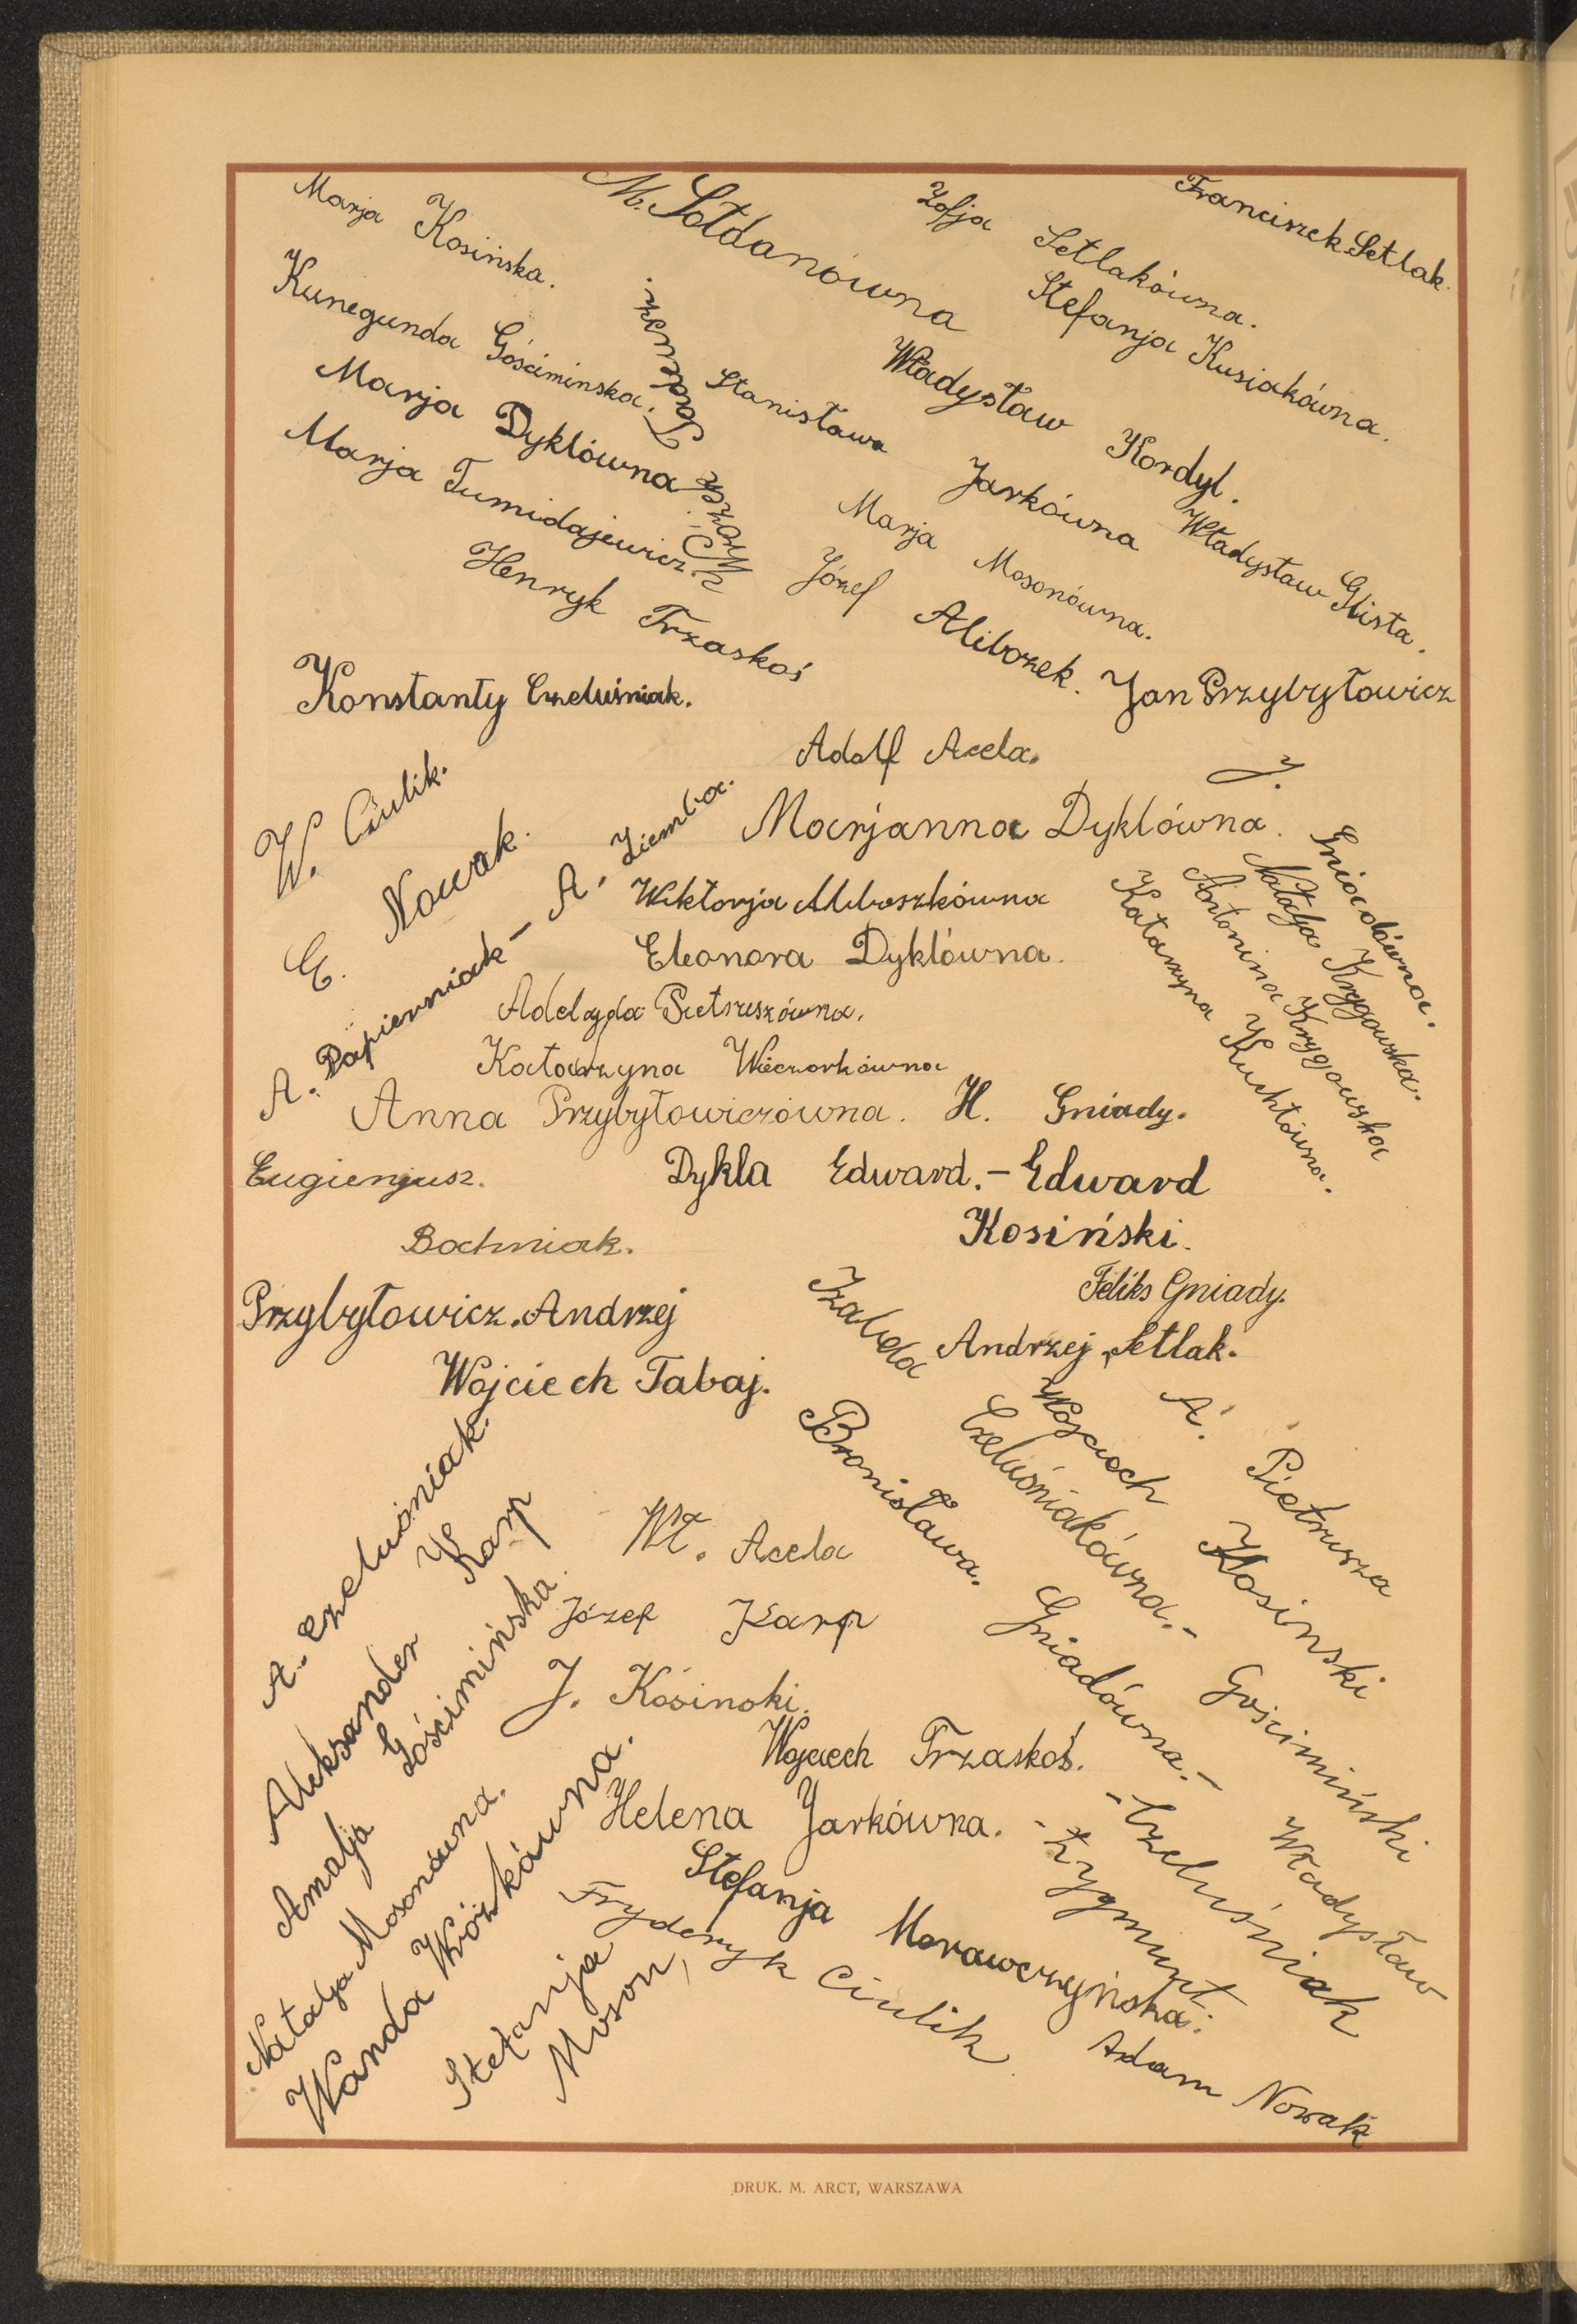 Marja Kosińska.
M. Sołdanówna
Zofja Setlakówna.
Franciszek Setlak.
Kunegunda Gościminska.
Stefanja Kusiakówna.
Marja Dyklówna
Stanisława Jarkówna
Władysław Kordyl.
Marja Tumidajewicz.
Marja Mosonówna.
Władysław Glista.
Henryk Trzaskoś
Józef Aliborek.
Jan Przybyłowicz
Konstanty Czeluśniak.
Adolf Acela.
W. Ciulik.
Marjanna Dyklówna.
J. Gniadówna.
E. Nowak.
A. Papierniak – A. Ziemba.
Wiktorja Mibroszkówna
Natalja Krygowska.
Antonina Krygowska
Katarzyna Kuchtówna.
Eleonora Dyklówna.
Adelajda Pietruszówna.
Katarzyna Wieczorkówna
Anna Przybyłowiczówna. H. Gniady.
Eugienjusz.
Bochniak.
Dykla Edward. – Edward
Kosiński.
Feliks Gniady.
Przybyłowicz. Andrzej
Andrzej Setlak.
Wojciech Tabaj.
Izabela Czeluśniakówna. –
Wojciech Kosinski
A. Pietrusza
Bronisława. Gniadówna. –
Gościmiński Władysław
A. Czeluśniak.
Aleksander Karp
Wł. Acela
Józef Karp
Amalja Gościmińska.
J. Kosinski.
Wojciech Trzaskoś.
Natalja Mosonówna.
Wanda Wózkówna.
Helena Jarkówna.
– Czeluśniak
– Zygmunt.
Stefanja Morawczyńska.
Fryderyk Ciulik
Stefanja
Moson,
Adam Nowak
DRUK. M. ARCT, WARSZAWA